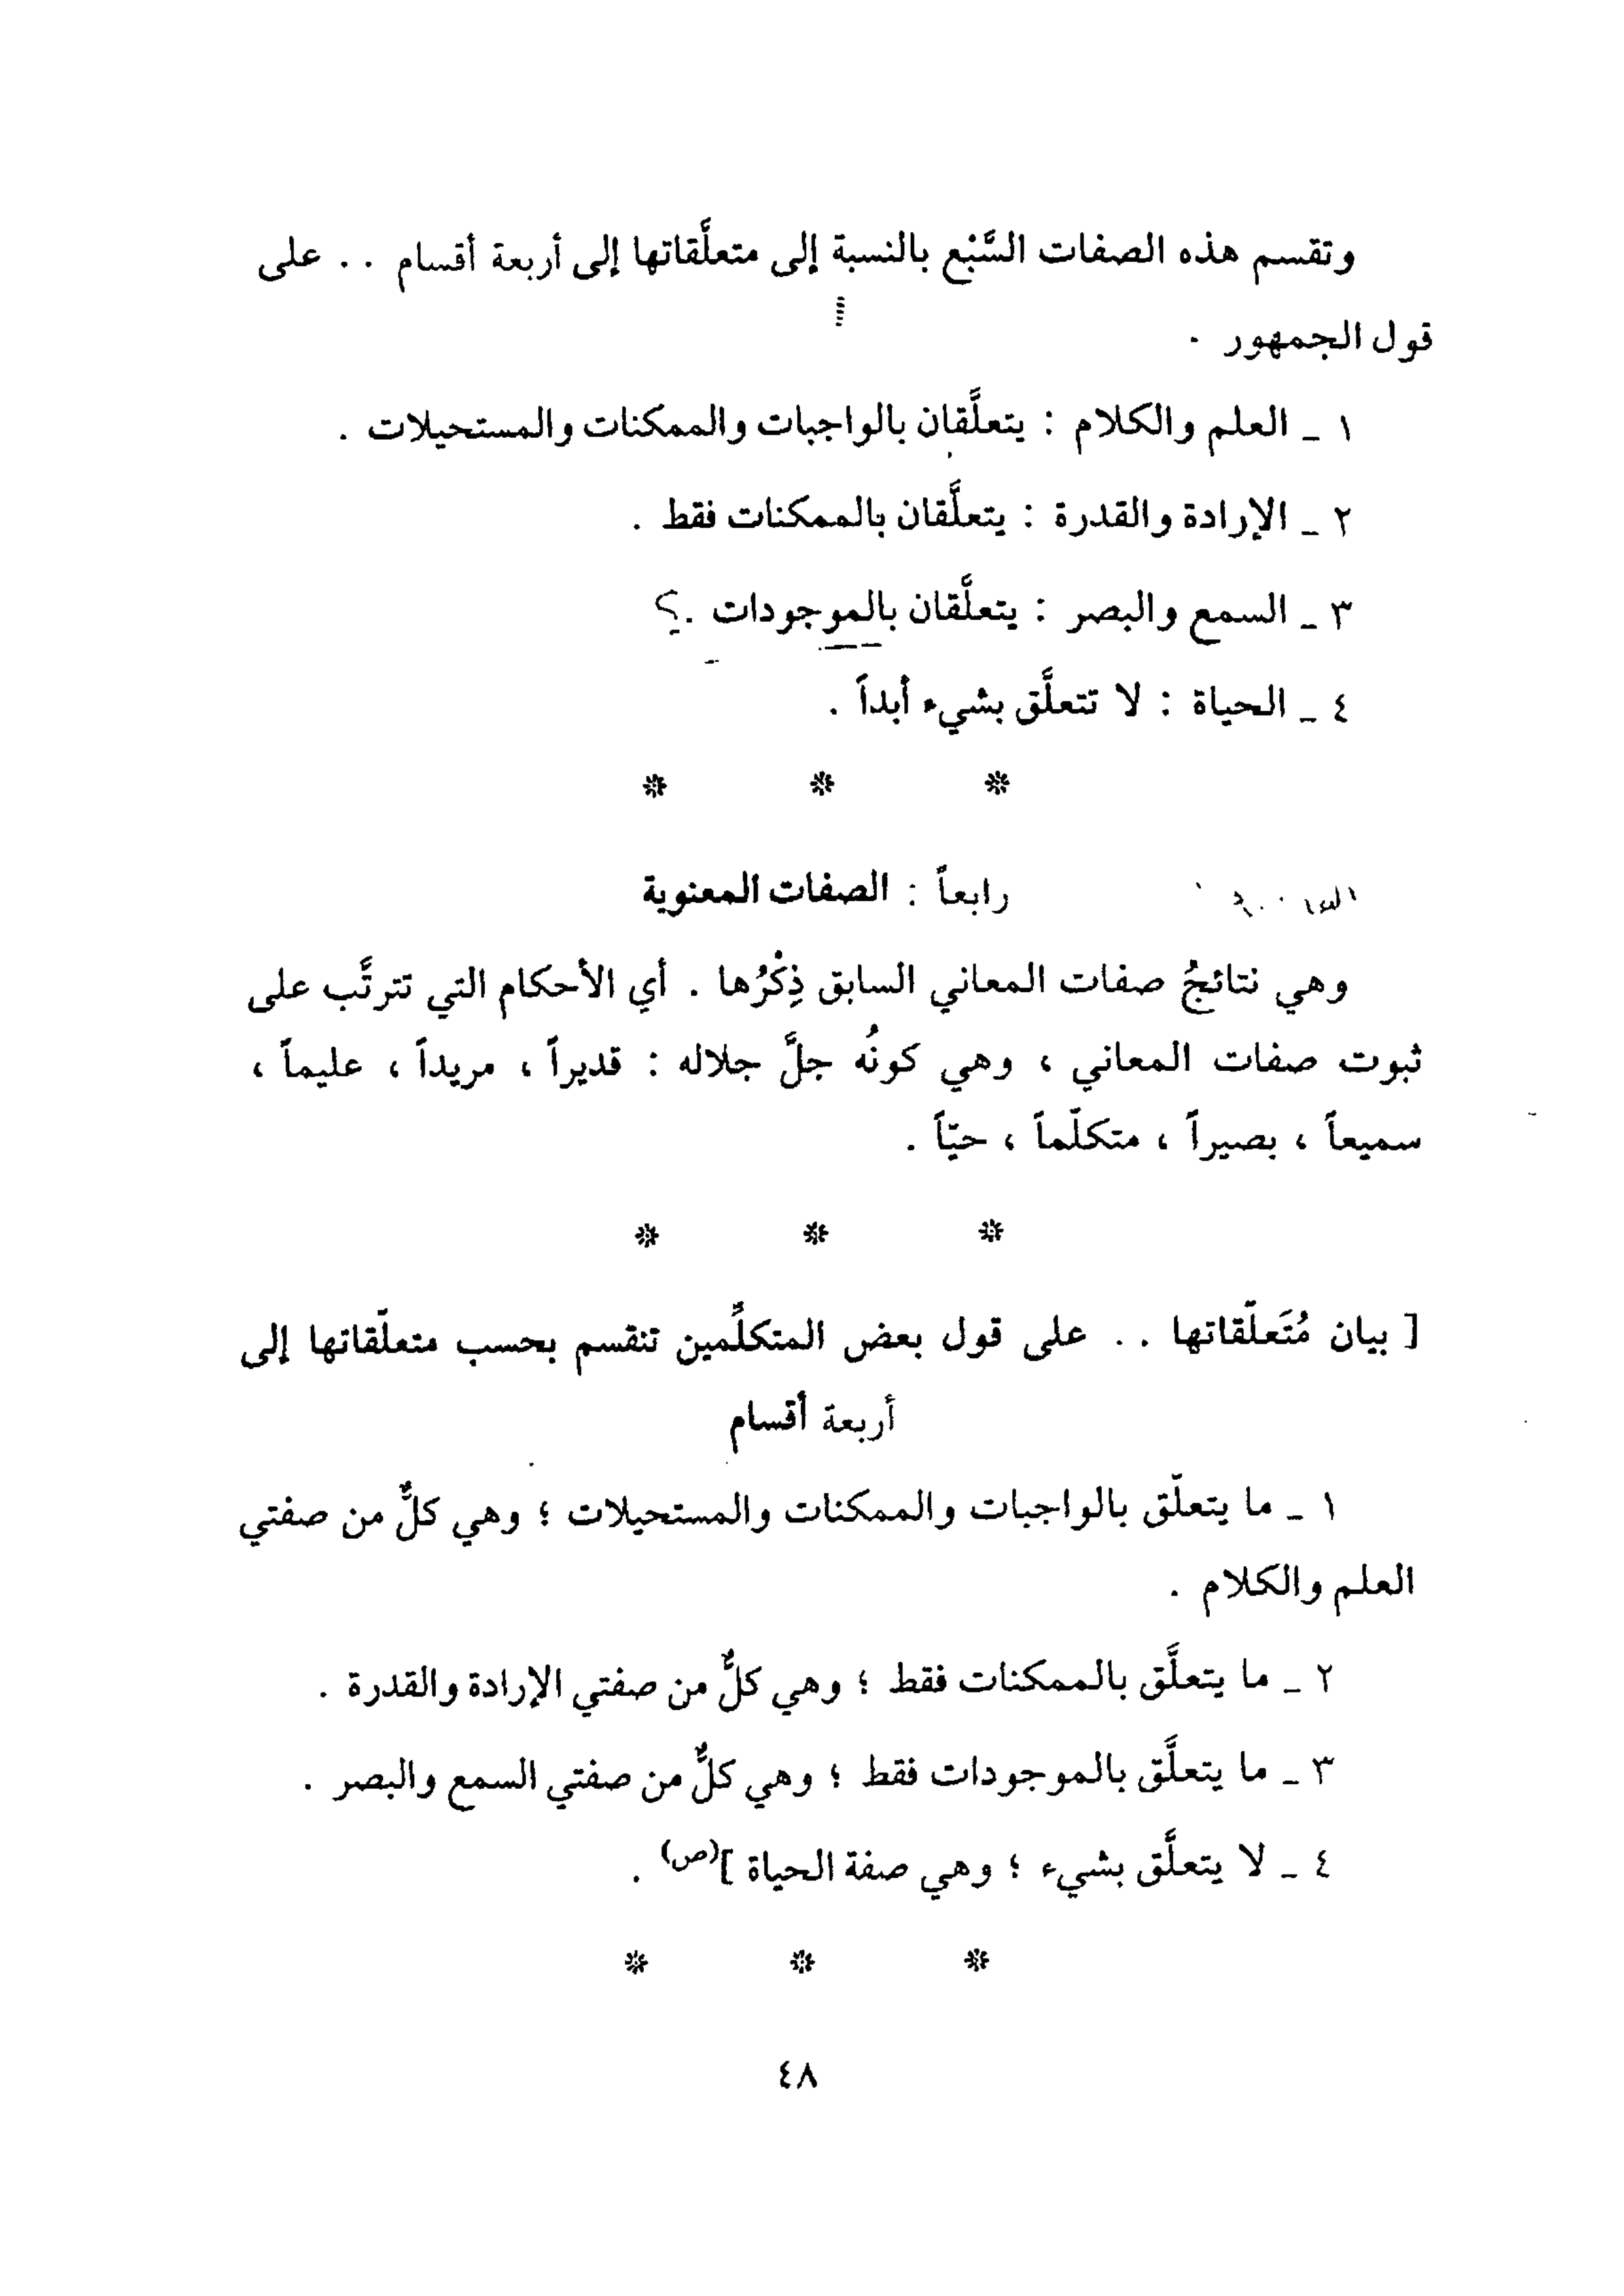 وتقسم هذه الصفات السَّبْع بالنسبة إلى متعلَّقاتها إلى أربعة أقسام . . على
قول الجمهور .
١ _ العلم والكلام : يتعلَّقان بالواجبات والممكنات والمستحيلات .
٢ _ الإرادة والقدرة : يتعلَّقان بالممكنات فقط .
٣ _ السمع والبصر : يتعلَّقان بالموجودات .؟
٤ _ الحياة : لا تتعلَّق بشيء أبداً .
* * *
رابعاً : الصفات المعنوية
وهي نتائجُ صفات المعاني السابق ذِكْرُها . أي الأحكام التي تترتَّب على
ثبوت صفات المعاني ، وهي كونُه جلَّ جلاله : قديراً ، مريداً ، عليماً ،
سميعاً ، بصيراً ، متكلّماً ، حيّاً .
* * *
[ بيان مُتَعلّقاتها . . على قول بعض المتكلِّمين تنقسم بحسب متعلّقاتها إلى
أربعة أقسام
١ _ ما يتعلّق بالواجبات والممكنات والمستحيلات ؛ وهي كلٌّ من صفتي
العلم والكلام .
٢ _ ما يتعلَّق بالممكنات فقط ؛ وهي كلٌّ من صفتي الإرادة والقدرة .
٣ _ ما يتعلَّق بالموجودات فقط ؛ وهي كلٌّ من صفتي السمع والبصر .
٤ _ لا يتعلَّق بشيء ؛ وهي صفة الحياة ](ص) .
* * *
٤٨